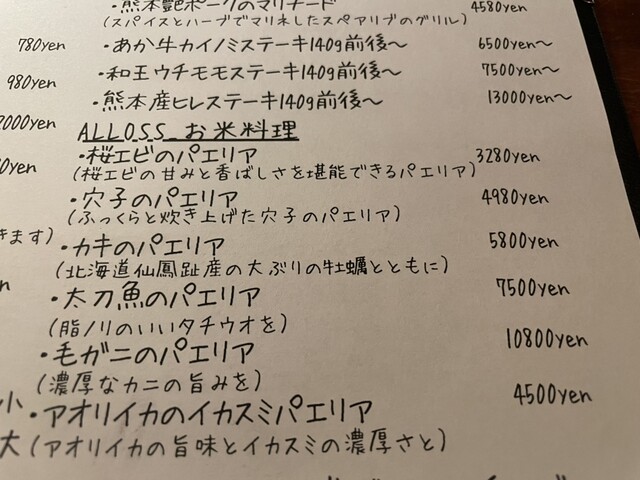 ・熊本艶ポークのマリナード 4580yen
(スパイスとハーブでマリネしたスペアリブのグリル)
780yen
・あか牛カイノミステーキ140g前後〜 6500yen〜
980yen
・和王ウチモモステーキ140g前後〜 7500yen〜
・熊本産ヒレステーキ140g前後〜 13000yen〜
2000yen
ALLOSS お米料理
・桜エビのパエリア 3280yen
(桜エビの甘みと香ばしさを堪能できるパエリア)
・穴子のパエリア 4980yen
(ふっくらと炊き上げた穴子のパエリア)
きます)
・カキのパエリア 5800yen
(北海道仙鳳趾産の大ぶりの牡蠣とともに)
・太刀魚のパエリア 7500yen
(脂ノリのいいタチウオを)
・毛ガニのパエリア 10800yen
(濃厚なカニの旨みを)
小
・アオリイカのイカスミパエリア 4500yen
大
(アオリイカの旨味とイカスミの濃厚さと)